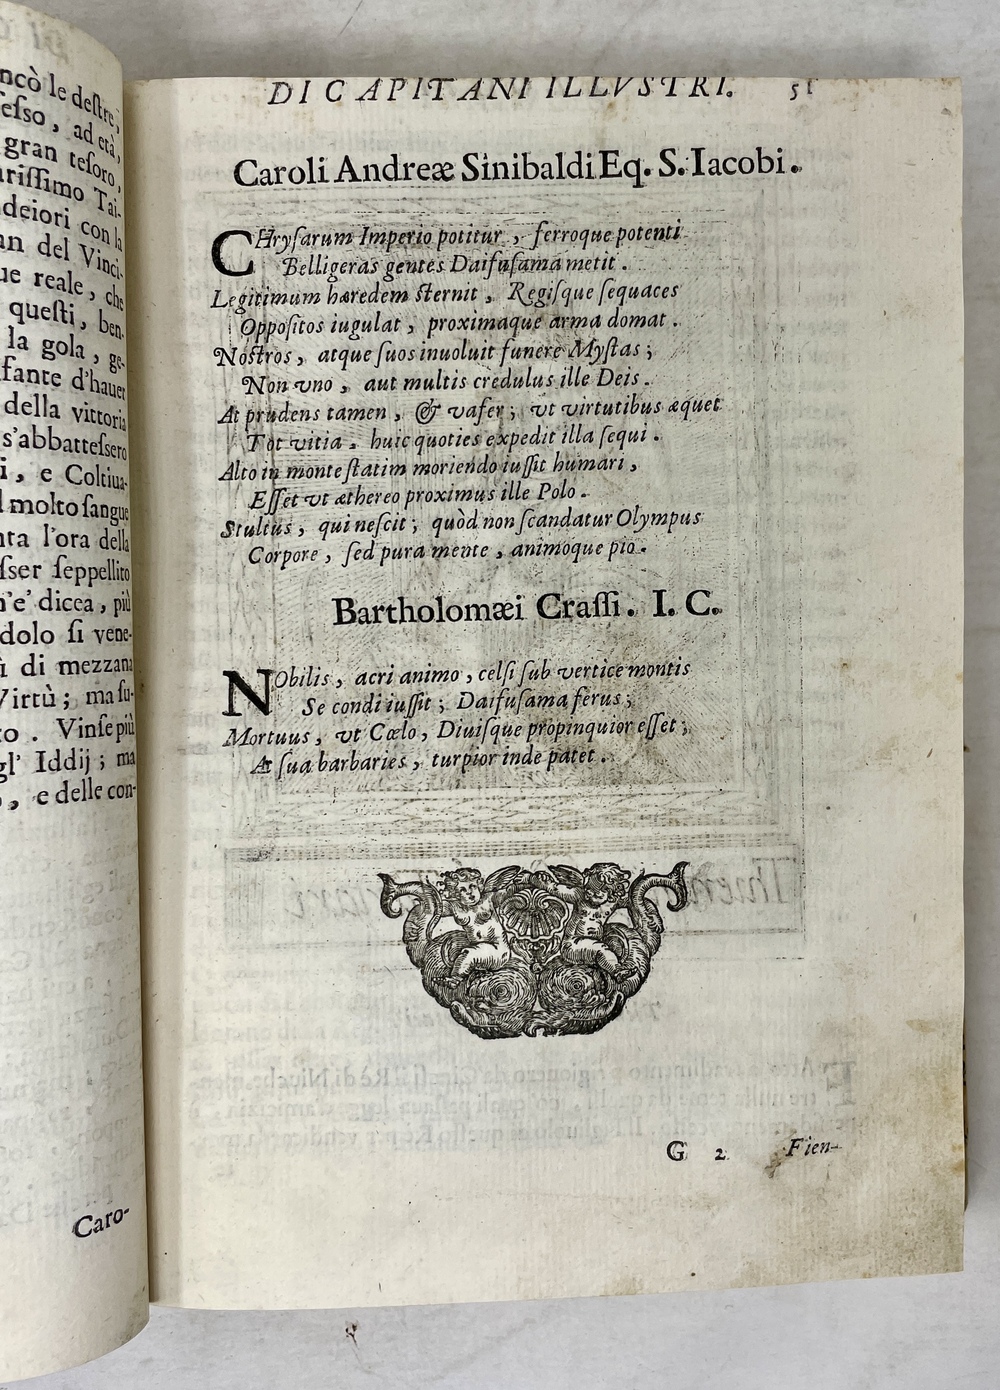 ncò le deſtre,
eſſo, ad età,
gran teſoro,
ariſſimo Tai-
deiori con la
an del Vinci-
ue reale, che
queſti, ben.
la gola, ge-
fante d'hauer
della vittoria
s'abbatteſſero
i, e Coltiua-
molto ſangue
nta l'ora della
ſſer ſeppellito
n'e' dicea, più
dolo ſi vene-
ù di mezzana
Virtù; ma ſu-
to. Vinſe più
gl' Iddij; ma
, e delle con-
Caro-
DI CAPITANI ILLVSTRI. 51
Caroli Andreæ Sinibaldi Eq. S. Iacobi.
CHryſarum Imperio potitur, ferroque potenti
Belligeras gentes Daifuſama metit.
Legitimum hæredem ſternit, Regiſque ſequaces
Oppoſitos iugulat, proximaque arma domat.
Noſtros, atque ſuos inuoluit funere Myſtas;
Non vno, aut multis credulus ille Deis.
At prudens tamen, & vafer; vt virtutibus æquet
Tot vitia, huic quoties expedit illa ſequi.
Alto in monte ſtatim moriendo iuſſit humari,
Eſſet vt æthereo proximus ille Polo.
Stultus, qui neſcit; quòd non ſcandatur Olympus
Corpore, ſed pura mente, animoque pio.
Bartholomæi Craſſi. I. C.
NObilis, acri animo, celſi ſub vertice montis
Se condi iuſſit; Daifuſama ferus;
Mortuus, vt Cœlo, Diuiſque propinquior eſſet;
At ſua barbaries, turpior inde patet.
G 2 Fien-